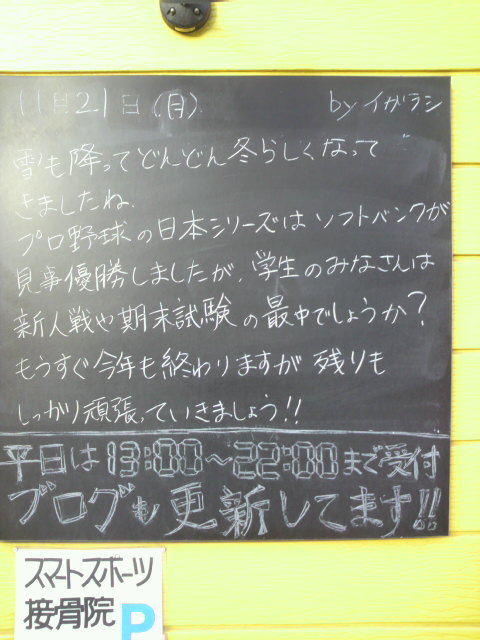 11月21日(月) by イガラシ
雪も降ってどんどん冬らしくなって
きましたね.
プロ野球の日本シリーズはソフトバンクが
見事優勝しましたが、学生のみなさんは
新人戦や期末試験の最中でしょうか?
もうすぐ今年も終わりますが 残りも
しっかり頑張っていきましょう!!
平日は13:00~22:00まで受付
ブログも更新してます!!
スマートスポーツ
接骨院 P